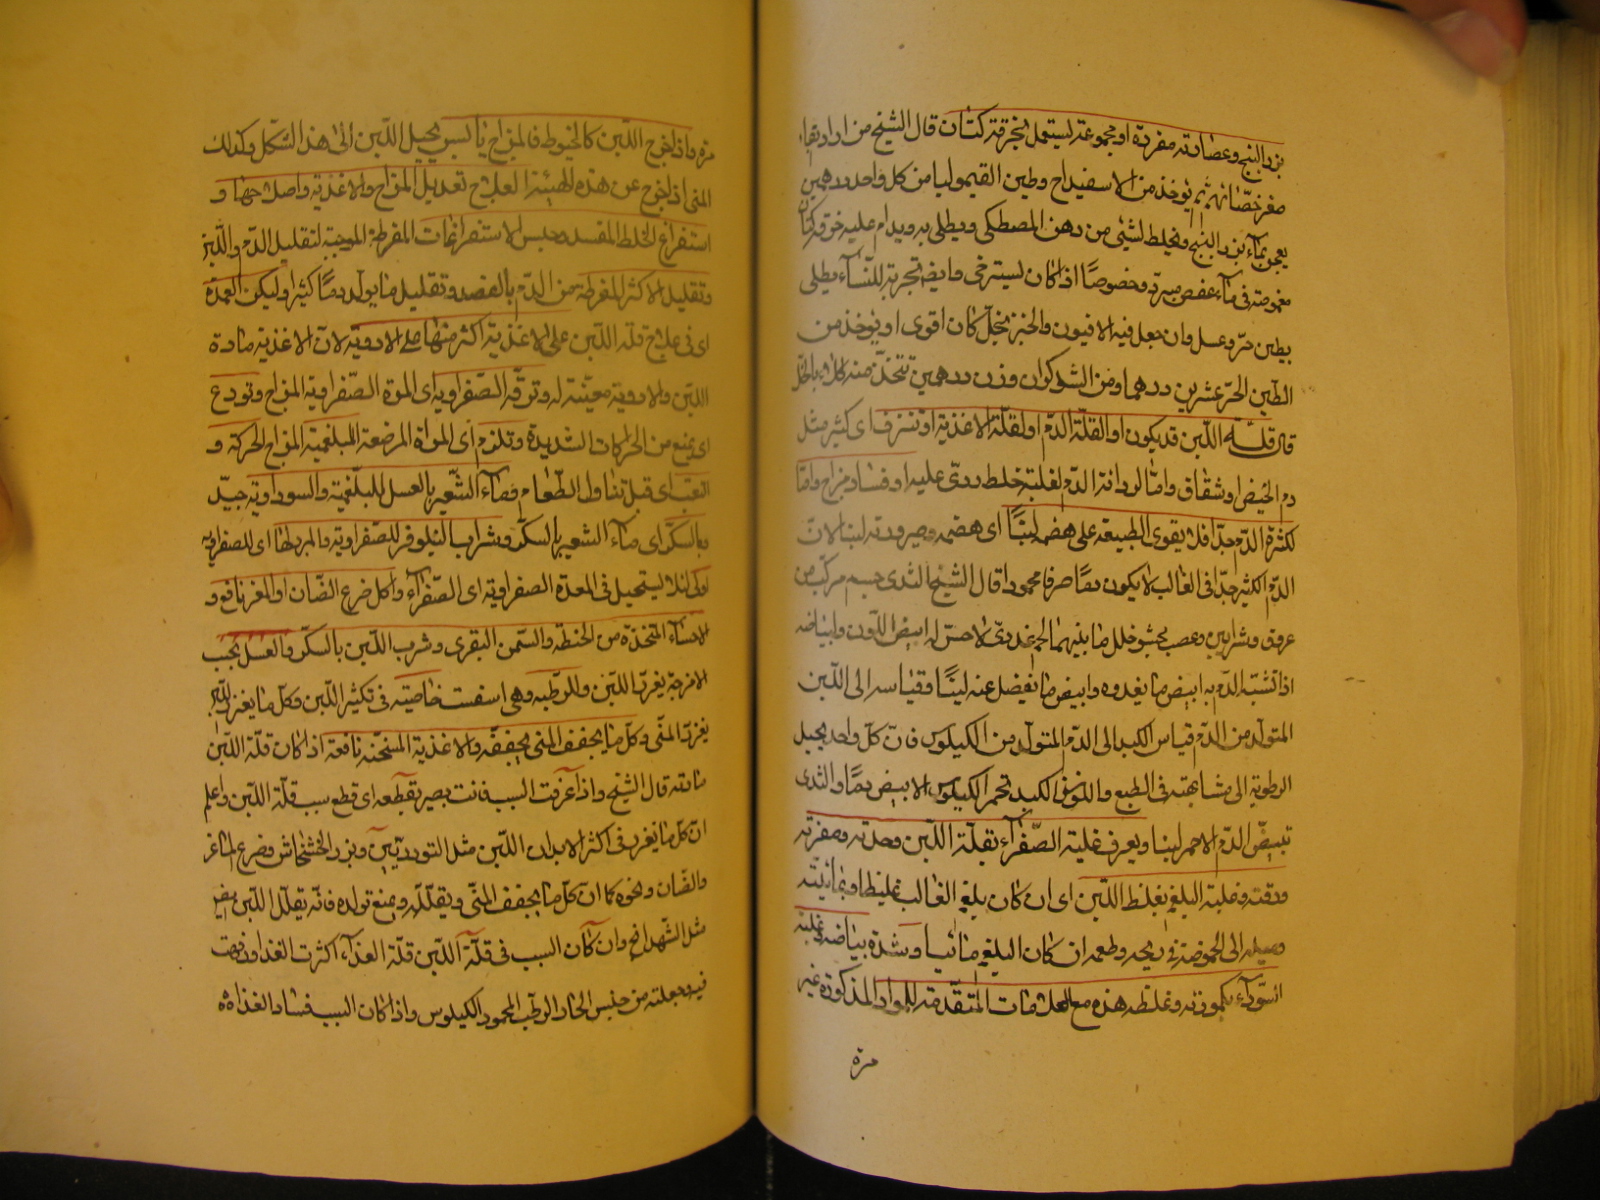 بزر البنج وعصارته مفردة او مجموعة ليستعمل بخرقة كتان قال الشيخ من اراد بقاء
صغر خصيانهم ثم يوخذ من الاسفيداج وطين القيموليا من كل واحد درهمين
يعجن بماء بزر البنج ويخلط لشئ من دهن المصطكى ويطلى به ويدام عليه خرقة كتان
مغموسة فى ماء عفص مبرد وخصوصا اذا كان يسترخى وايضا تجربة للنساء يطلى
بطين حر وعسل وان جعل فيه الافيون والخبز بخل كان اقوى او يؤخذ من
الطين الحر عشرين درهما ومن الشوكران وزن درهمين تتخذ منه بالخل
قلة اللبن قد يكون اما لقلة الدم او لقلة الاغذية او نزف اى كثير مثل
دم الحيض او شقاق واما لرداءة الدم لغلبة خلط ردى عليه او فساد مزاج واما
لكثرة الدم جدا فلا يقوى الطبيعة على هضمه لبنا اى هضمه وصيرورته لبنا لان
الدم الكثير جدا فى الغالب لا يكون دما صرفا محمودا قال الشيخ الثدى جسم مركب من
عروق وشرايين وعصب يحشو خلل ما بينهما لحم غددى لا حس له ابيض اللون ولبياضه
اذا تشبه الدم به ابيض ما يغدوه وابيض ما ينفصل عنه لبنا وقياسه الى اللبن
المتولد من الدم قياس الكبد الى الدم المتولد من الكيلوس فان كل واحد يحيل
الرطوبة الى مشابهته فى الطبع واللون فالكبد تحمر الكيلوس الابيض دما والثدى
تبيض الدم الاحمر لبنا ويعرف غلبة الصفراء بقلة اللبن وحدته وصفرته
ورقته وغلبة البلغم بغلظ اللبن اى ان كان بلغم الغالب غليظا وبمائيته
وميله الى الحموضة فى ريحه وطعمه ان كان البلغم مائيا وشدة بياضه وغلبة
السوداء بكمودته وغلظه هذه مع العلامات المتقدمة للمواد المذكورة غير
مرة
مرة واذا خرج اللبن كالخيوط فالمزاج يابس يحيل اللبن الى هذا الشكل وكذلك
المنى اذا خرج عن هذه الهيئة العلاج تعديل المزاج والاغذية واصلاحها و
استفراغ الخلط المفسد وحبس الاستفراغات المفرطة الموجبة لتقليل الدم واللبن
وتقليل الاكثار المفرطة من الدم بالفصد وتقليل ما يولد دما كثيرا وليكن العمدة
اى فى علاج قلة اللبن على الاغذية اكثر منها على الادوية لان الاغذية مادة
اللبن والادوية معينة له وترفه الصفراوية اى المرة الصفراوية المزاج وتودع
اى يمنع من الحركات الشديدة وتلزم اى المراة المرضعة البلغمية المزاج الحركة و
التعب اى قبل تناول الطعام وماء الشعير بالعسل للبلغمية والسوداوية جيد
وبالسكر اى ماء الشعير بالسكر وشراب النيلوفر للصفراوية بالمبردة اى للصفراوية
اولى لئلا يستحيل فى المعدة الصفراوية اى الصفراء واكل ضرع الضان او المعز نافع و
الاحساء المتخذة من الحنطة والسمن البقرى وشرب اللبن بالسكر والعسل بحسب
الامزجة يغزر اللبن وللرطبة وهى اسفست خاصية فى تكثير اللبن وكل ما يغزر اللبن
يغزر المنى وكل ما يجفف المنى يجففه والاغذية المسخنة نافعة اذا كان قلة اللبن
قال الشيخ واذا عرفت السبب فانت بصير بقطعه اى قطع سبب قلة اللبن واعلم
ان كل ما يغزر فى اكثر الابدان اللبن مثل التودريين وبزر الخشخاش وضرع الماعز
والضان ونحوه كما ان كل ما يجفف المنى ويقلله ويمنع تولده فانه يقلل اللبن ايضا
مثل الشهدانج وان كان السبب فى قلة اللبن قلة الغذاء اكثرت الغذا ورفهت
فيه وجعلته من جنس الحار الرطب المحمود الكيلوس واذا كان السبب فساد الغذاء